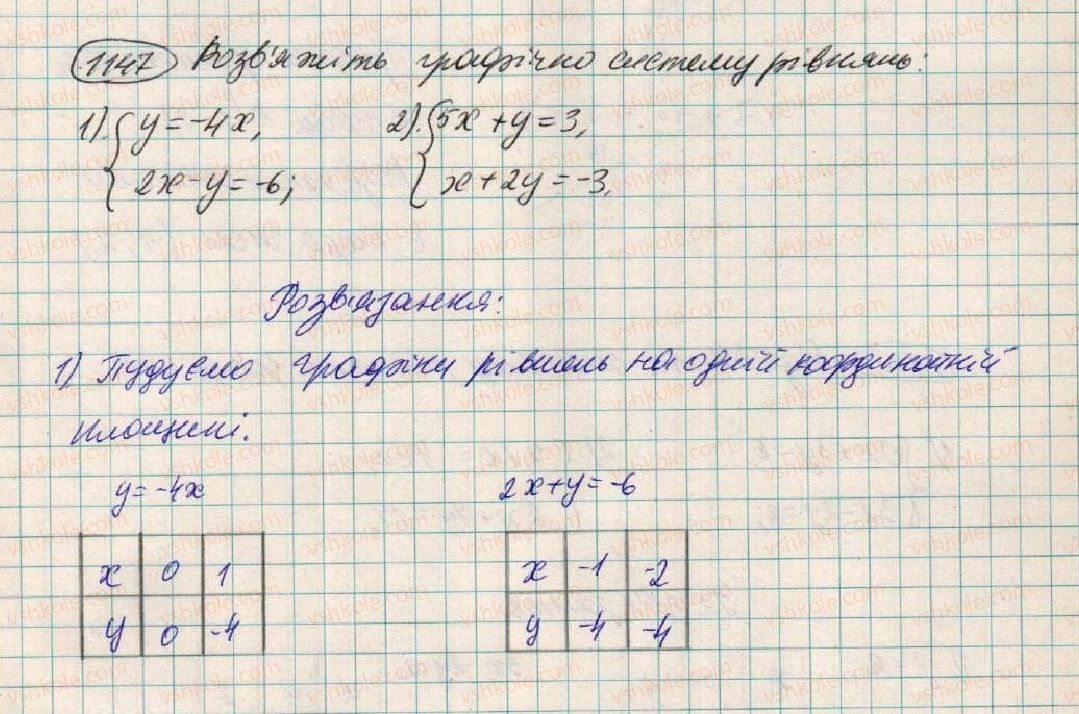 1147 Розв'яжіть графічно систему рівнянь:
1) { y = -4x, 2) { 5x + y = 3,
2x - y = -6; x + 2y = -3.
Розв'язання:
1) Пудуємо графіки рівнянь на одній координатній
площині.
y = -4x 2x + y = -6
x 0 1 x -1 -2
y 0 -4 y -4 -4